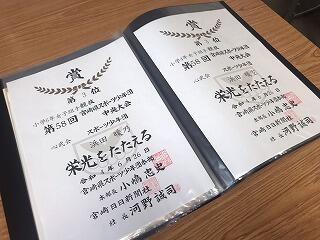 賞
第 位
小学6年女子組手競技
第58回 宮崎県スポーツ少年団
中央大会
スポーツ少年団
心武会 浜田 暖乃
栄光をたたえる
令和4年6月26日
宮崎県スポーツ少年団本部
本部長 小嶋忠史
宮崎日日新聞社
社長 河野誠司
賞
第 位
小学6年女子 競技
第58回 宮崎県スポーツ少年団
中央大会
スポーツ少年団
心武会 浜田 暖乃
栄光をたたえる
令和4年6月26日
宮崎県スポーツ少年団本部
本部長 小嶋忠史
宮崎日日新聞社
社長 河野誠司